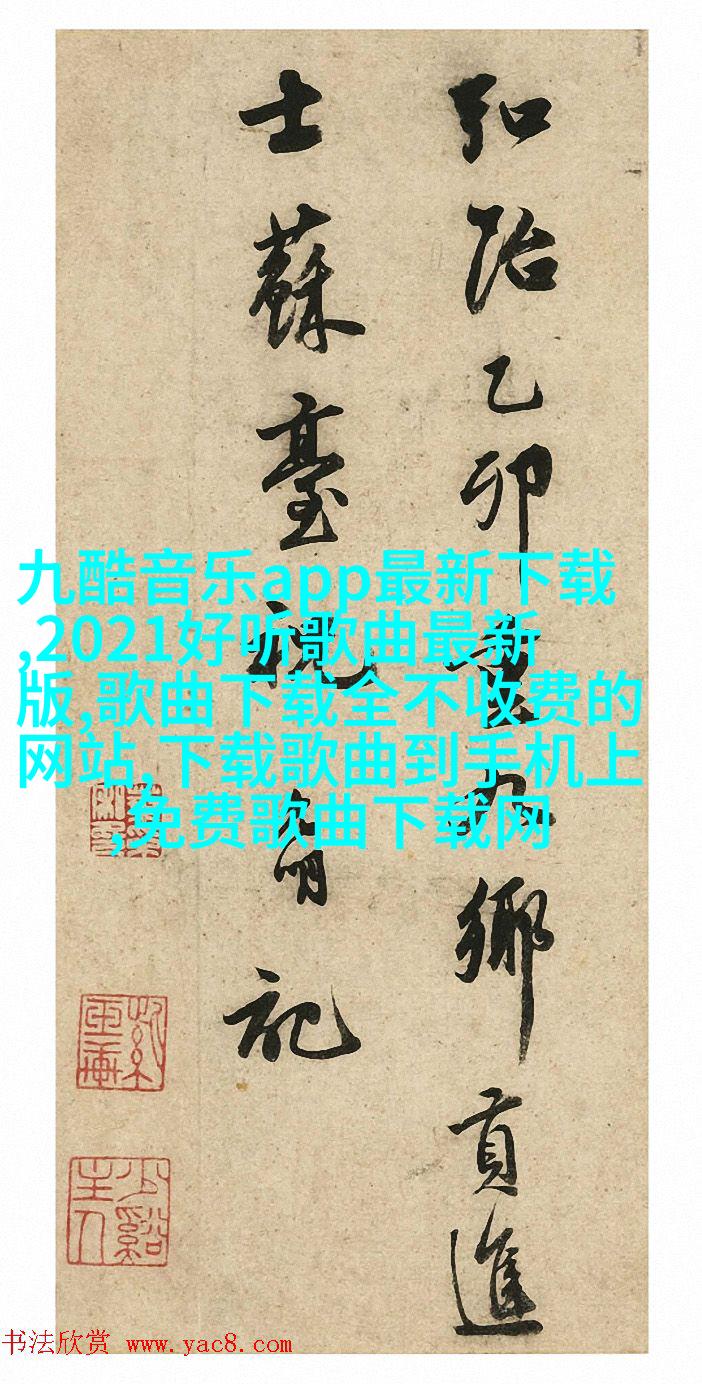 弘治乙卯重九鄉貢進
士蘇臺祝允明記
九酷音乐app最新下载
,2021好听歌曲最新
版,歌曲下载全不收费的
网站,下载歌曲到手机上
,免费歌曲下载网
少谿主人
书法欣赏 www.yac8.com